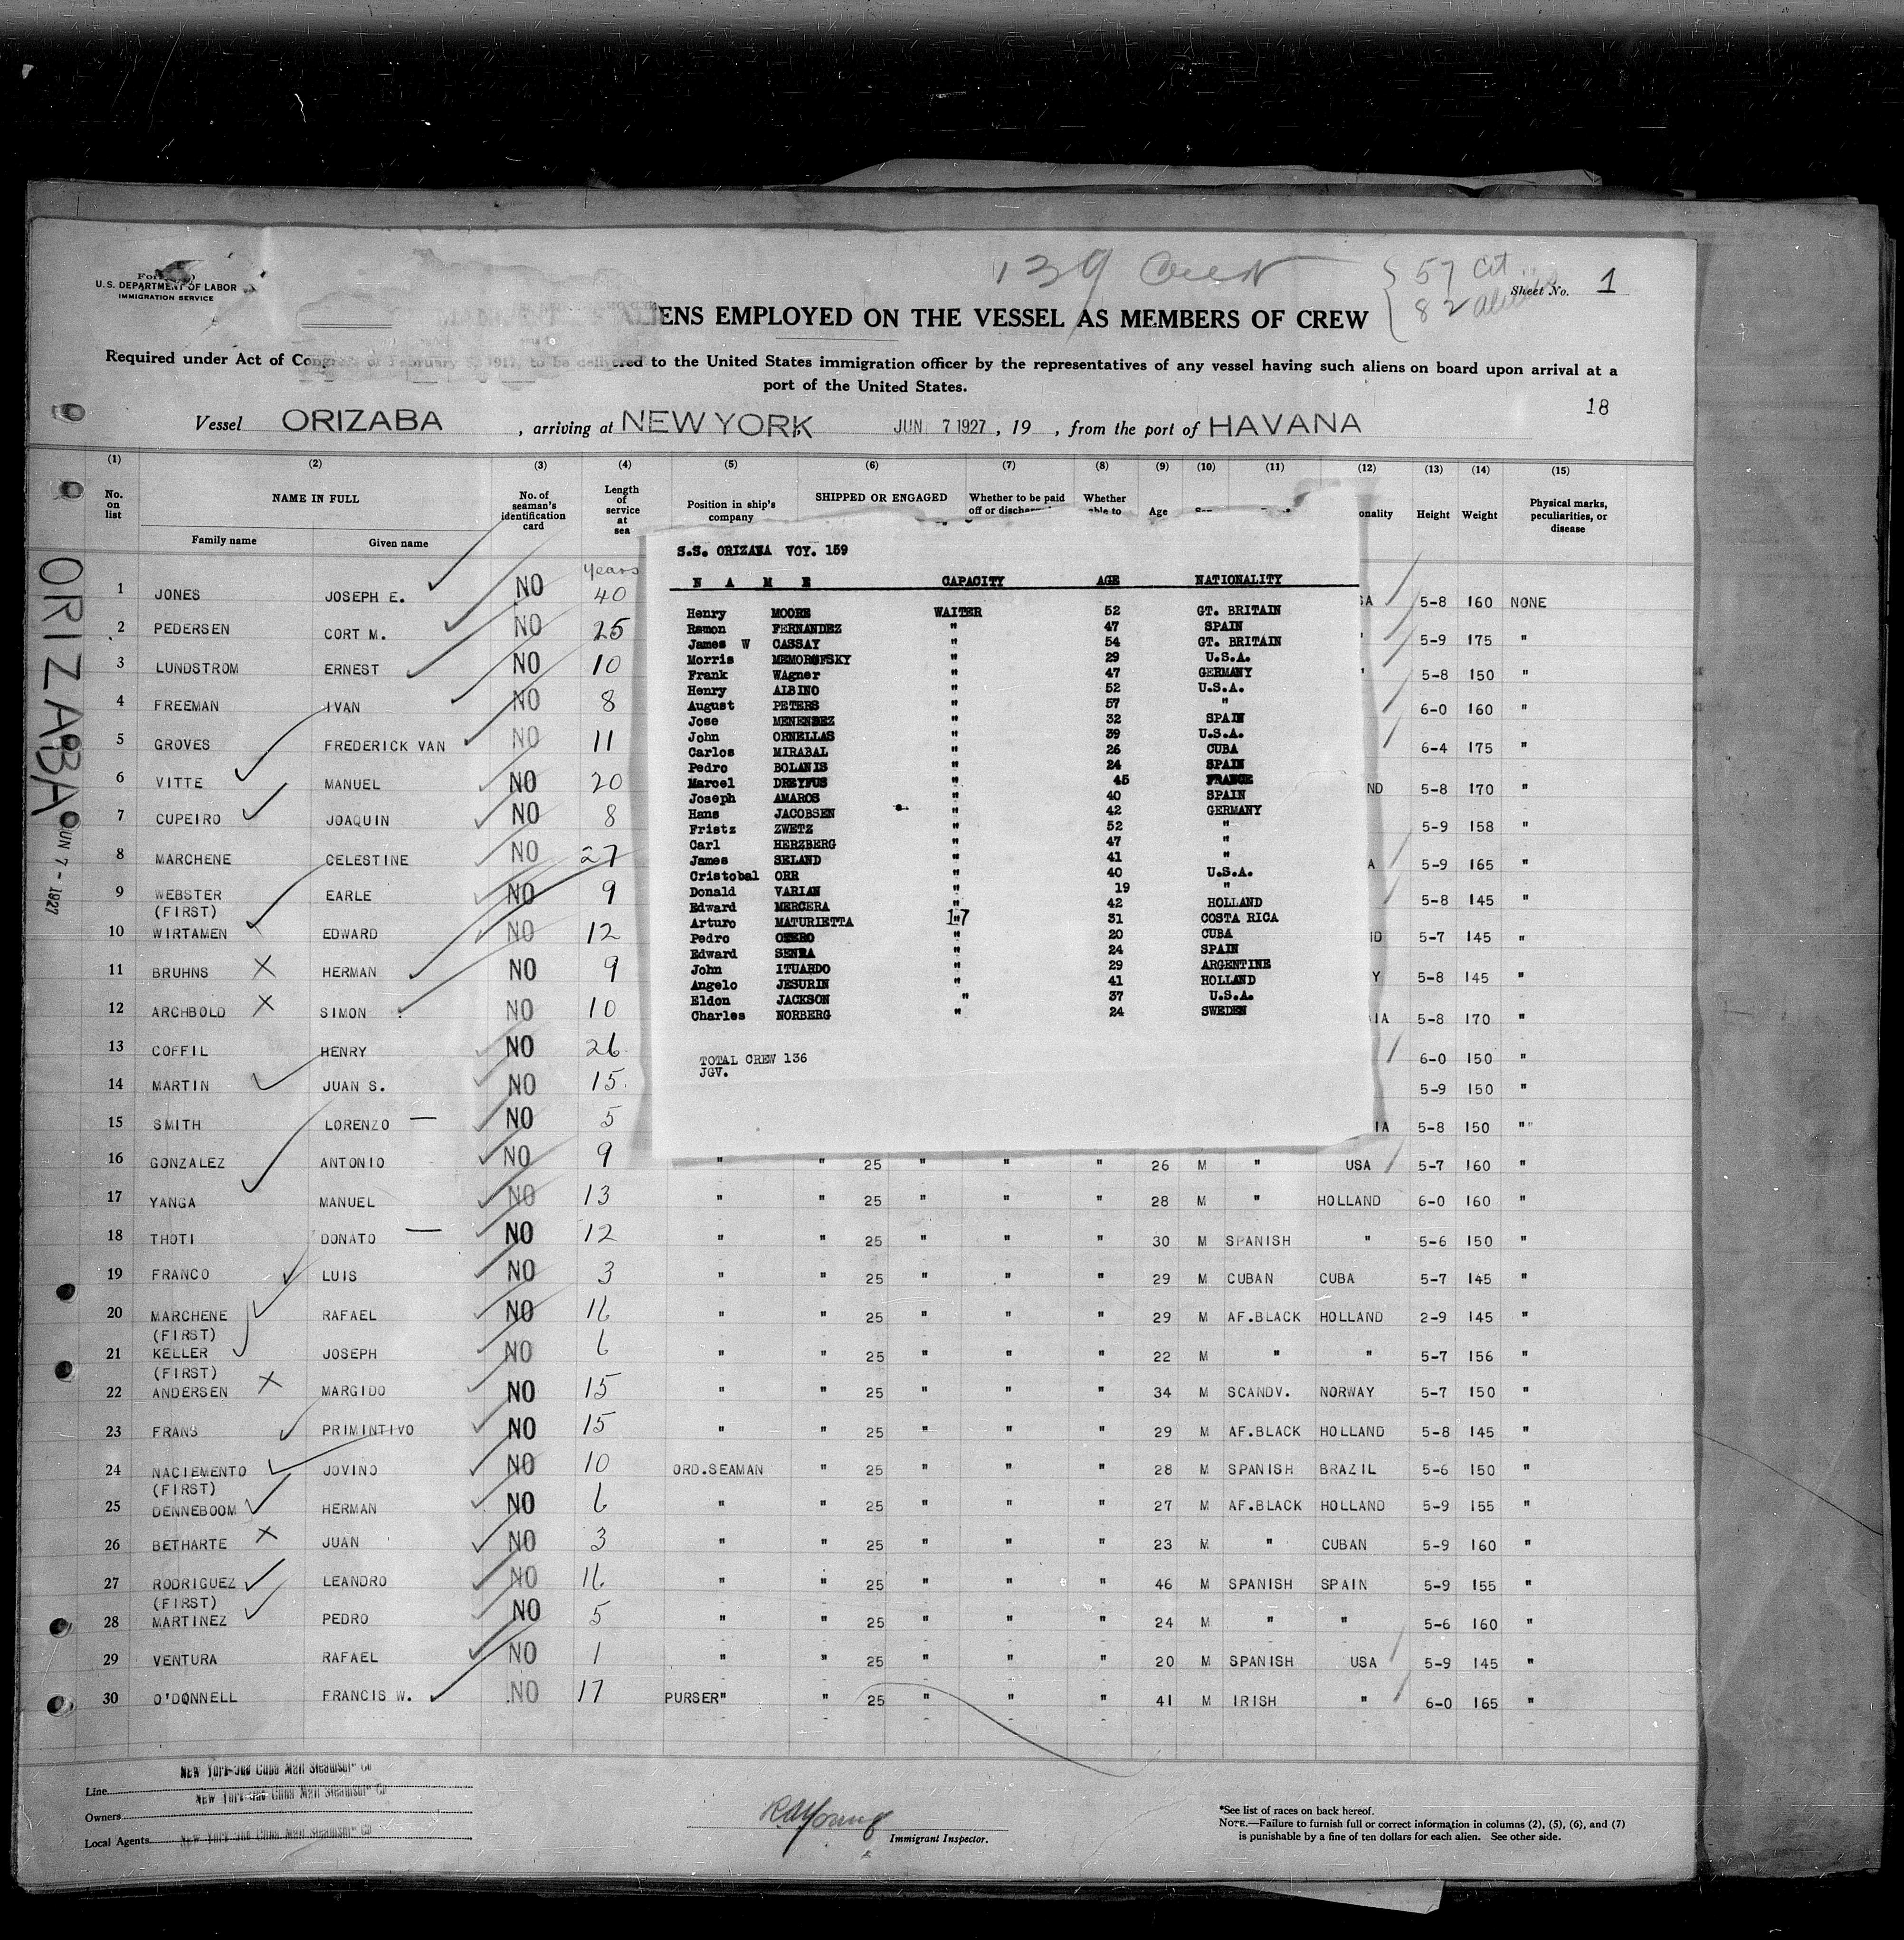 U.S. DEPARTMENT OF LABOR
IMMIGRATION SERVICE
139
57 Cit
82 aliens
Sheet No. 1
ENS EMPLOYED ON THE VESSEL AS MEMBERS OF CREW
Required under Act of Congress of February 5, 1917, to be delivered to the United States immigration officer by the representatives of any vessel having such aliens on board upon arrival at a
port of the United States.
18
Vessel ORIZABA , arriving at NEW YORK JUN 7 1927 , 19 , from the port of HAVANA
(1) (2) (3) (4) (5) (6) (7) (8) (9) (10) (11) (12) (13) (14) (15)
No. on list NAME IN FULL No. of seaman's identification card Length of service at sea Position in ship's company SHIPPED OR ENGAGED Whether to be paid off or Whether Age onality Height Weight Physical marks, peculiarities, or disease
Family name Given name
years
ORIZABA
JUN 7 - 1927
1 JONES JOSEPH E. NO 40 SA 5-8 160 NONE
2 PEDERSEN CORT M. NO 25 " 5-9 175 "
3 LUNDSTROM ERNEST NO 10 " 5-8 150 "
4 FREEMAN IVAN NO 8 6-0 160 "
5 GROVES FREDERICK VAN NO 11 6-4 175 "
6 VITTE MANUEL NO 20 ND 5-8 170 "
7 CUPEIRO JOAQUIN NO 8 5-9 158 "
8 MARCHENE CELESTINE NO 27 A 5-9 165 "
9 WEBSTER EARLE NO 9 5-8 145 "
(FIRST)
10 WIRTAMEN EDWARD NO 12 ND 5-7 145 "
11 BRUHNS X HERMAN NO 9 Y 5-8 145 "
12 ARCHBOLD X SIMON NO 10 IA 5-8 170 "
13 COFFIL HENRY NO 26 6-0 150 "
14 MARTIN JUAN S. NO 15 5-9 150 "
15 SMITH LORENZO — NO 5 IA 5-8 150 "
16 GONZALEZ ANTONIO NO 9 " " 25 " " " 26 M " USA 5-7 160 "
17 YANGA MANUEL NO 13 " " 25 " " " 28 M " HOLLAND 6-0 160 "
18 THOTI DONATO — NO 12 " " 25 " " " 30 M SPANISH " 5-6 150 "
19 FRANCO LUIS NO 3 " " 25 " " " 29 M CUBAN CUBA 5-7 145 "
20 MARCHENE RAFAEL NO 16 " " 25 " " " 29 M AF.BLACK HOLLAND 2-9 145 "
(FIRST)
21 KELLER JOSEPH NO 6 " " 25 " " " 22 M " " 5-7 156 "
(FIRST)
22 ANDERSEN X MARGIDO NO 15 " " 25 " " " 34 M SCANDV. NORWAY 5-7 150 "
23 FRANS PRIMINTIVO NO 15 " " 25 " " " 29 M AF.BLACK HOLLAND 5-8 145 "
24 NACIEMENTO JOVINO NO 10 ORD.SEAMAN " 25 " " " 28 M SPANISH BRAZIL 5-6 150 "
(FIRST)
25 DENNEBOOM HERMAN NO 6 " " 25 " " " 27 M AF.BLACK HOLLAND 5-9 155 "
26 BETHARTE X JUAN NO 3 " " 25 " " " 23 M " CUBAN 5-9 160 "
27 RODRIGUEZ LEANDRO NO 16 " " 25 " " " 46 M SPANISH SPAIN 5-9 155 "
(FIRST)
28 MARTINEZ PEDRO NO 5 " " 25 " " " 24 M " " 5-6 160 "
29 VENTURA RAFAEL NO 1 " " 25 " " " 20 M SPANISH USA 5-9 145 "
30 O'DONNELL FRANCIS W. NO 17 PURSER" " 25 " " " 41 M IRISH " 6-0 165 "
S.S. ORIZANA VOY. 159
N A M E CAPACITY AGE NATIONALITY
Henry MOORE WAITER 52 GT. BRITAIN
Ramon FERNANDEZ " 47 SPAIN
James W CASSAY " 54 GT. BRITAIN
Morris MEMOROFSKY " 29 U.S.A.
Frank WAgner " 47 GERMANY
Henry ALBINO " 52 U.S.A.
August PETERS " 57 "
Jose MENENDEZ " 32 SPAIN
John ORNELLAS " 39 U.S.A.
Carlos MIRABAL " 26 CUBA
Pedro BOLANIS " 24 SPAIN
Marcel DREYFUS " 45 FRANCE
Joseph AMAROS " 40 SPAIN
Hans JACOBSEN " 42 GERMANY
Fristz ZWETZ " 52 "
Carl HERZBERG " 47 "
James SELAND " 41 "
Cristobal ORR " 40 U.S.A.
Donald VARIAN " 19 "
Edward MERCERA " 42 HOLLAND
Arturo MATURIETTA 17 31 COSTA RICA
Pedro OTERO " 20 CUBA
Edward SENRA " 24 SPAIN
John ITUARDO " 29 ARGENTINE
Angelo JESURIN " 41 HOLLAND
Eldon JACKSON " 37 U.S.A.
Charles NORBERG " 24 SWEDEN
TOTAL CREW 136
JGV.
Line New York and Cuba Mail Steamship Co
Owners New York and Cuba Mail Steamship Co
Local Agents New York and Cuba Mail Steamship Co
Immigrant Inspector.
*See list of races on back hereof.
NOTE.—Failure to furnish full or correct information in columns (2), (5), (6), and (7)
is punishable by a fine of ten dollars for each alien. See other side.